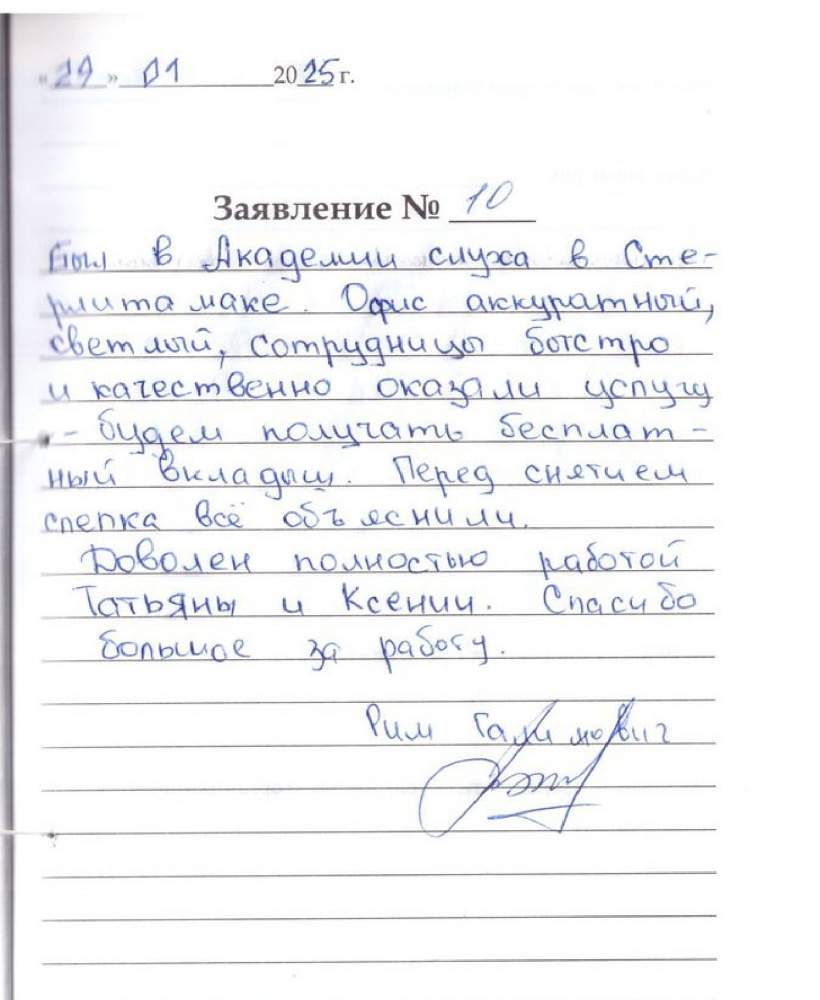 «29» 01 2025 г.
Заявление № 10
Был в Академии слуха в Сте-
рлитамаке. Офис аккуратный,
светлый, сотрудницы быстро
и качественно оказали услугу
- будем получать бесплат-
ный вкладыш. Перед снятием
слепка всё объяснили.
Доволен полностью работой
Татьяны и Ксении. Спасибо
большое за работу.
Рим Галимович